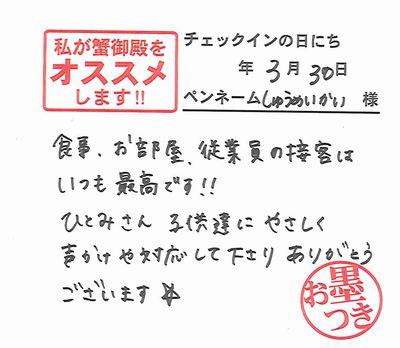 私が蟹御殿を
オススメ
します!!
チェックインの日にち
年 3月 30日
ペンネーム しゅうめいかい 様
食事、お部屋、従業員の接客は
いつも最高です!!
ひとみさん 子供達に やさしく
声かけや対応して下さり ありがとう
ございます☆
お墨つき